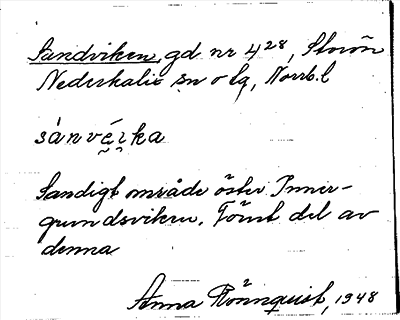 Sandviken, gd nr 4²⁸, Storön
Nederkalix sn o lg, Norrb.l
sánvérka
Sandigt område öster Inner-
grundsviken. Förut del av
denna
Anna Rönnquist, 1948